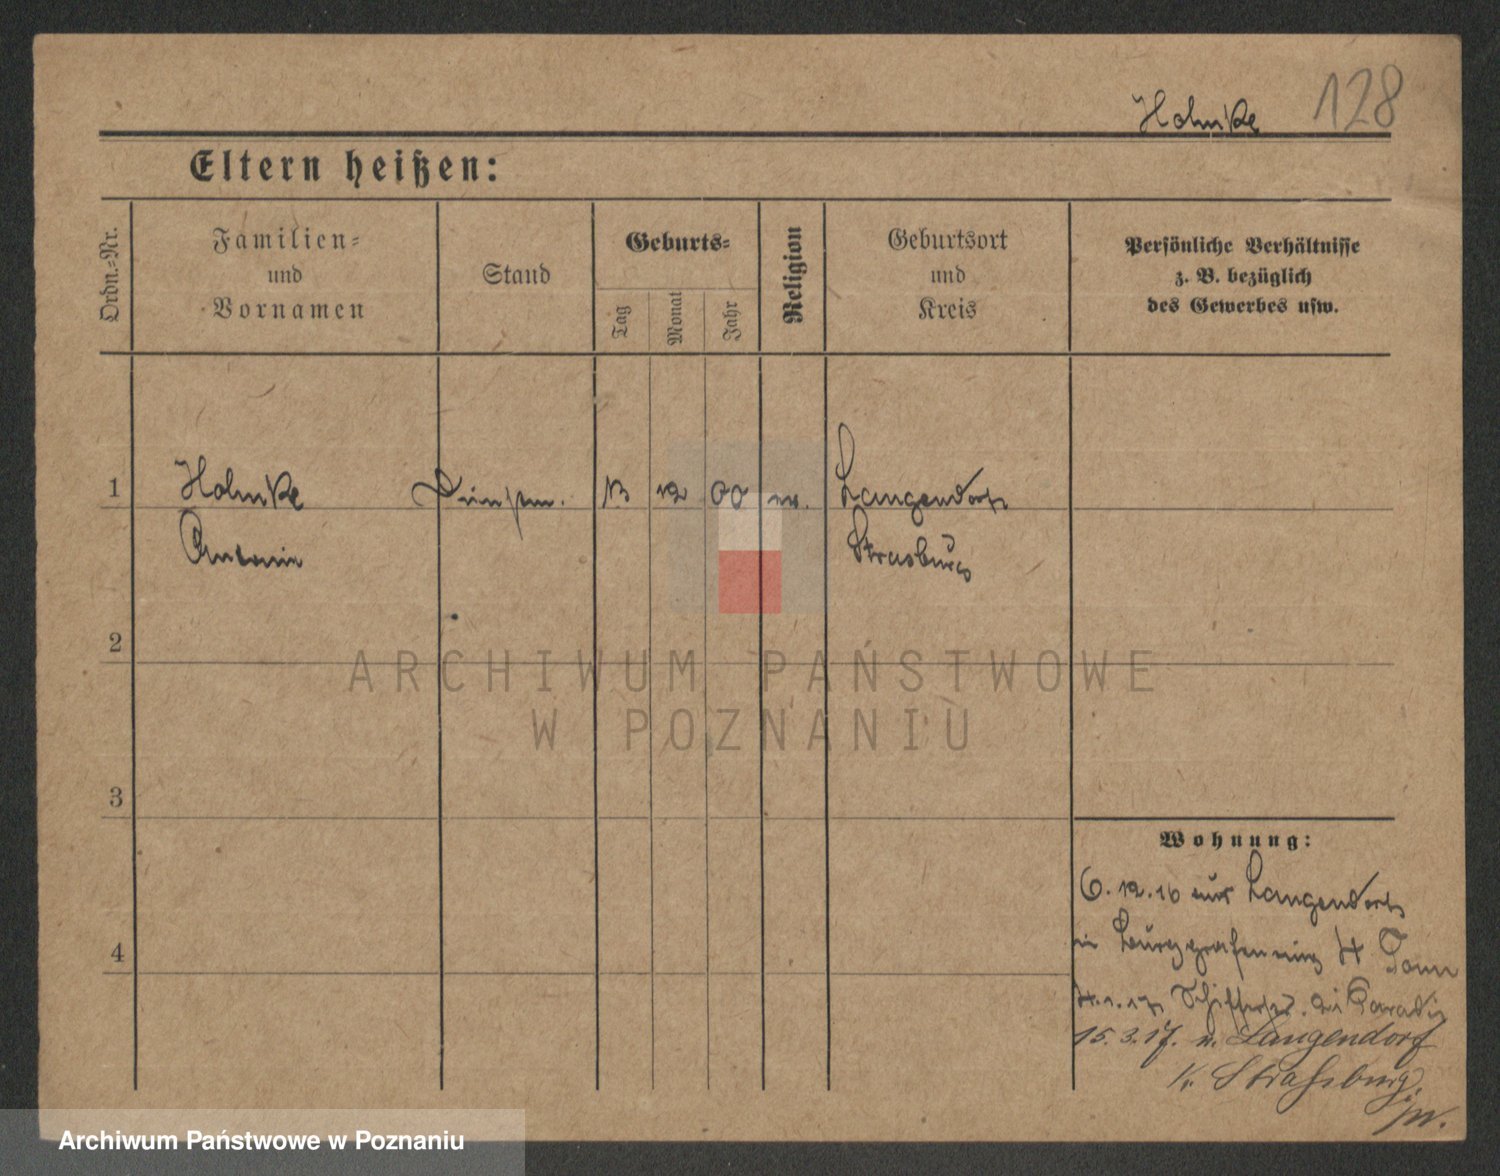 128
Hohnke
Eltern heißen:
Ordn.-Nr.
Familien-
und
Vornamen
Stand
Geburts-
Tag
Monat
Jahr
Religion
Geburtsort
und
Kreis
Persönliche Verhältnisse
z. B. bezüglich
des Gewerbes usw.
1 Hohnke 13 12 00 Langendorf
Antonie Strasburg
2
ARCHIWUM PAŃSTWOWE
W POZNANIU
3
Wohnung:
6.12.16 aus Langendorf
4
4.1.17
15.3.17. n. Langendorf
K. Straßburg
Archiwum Państwowe w Poznaniu